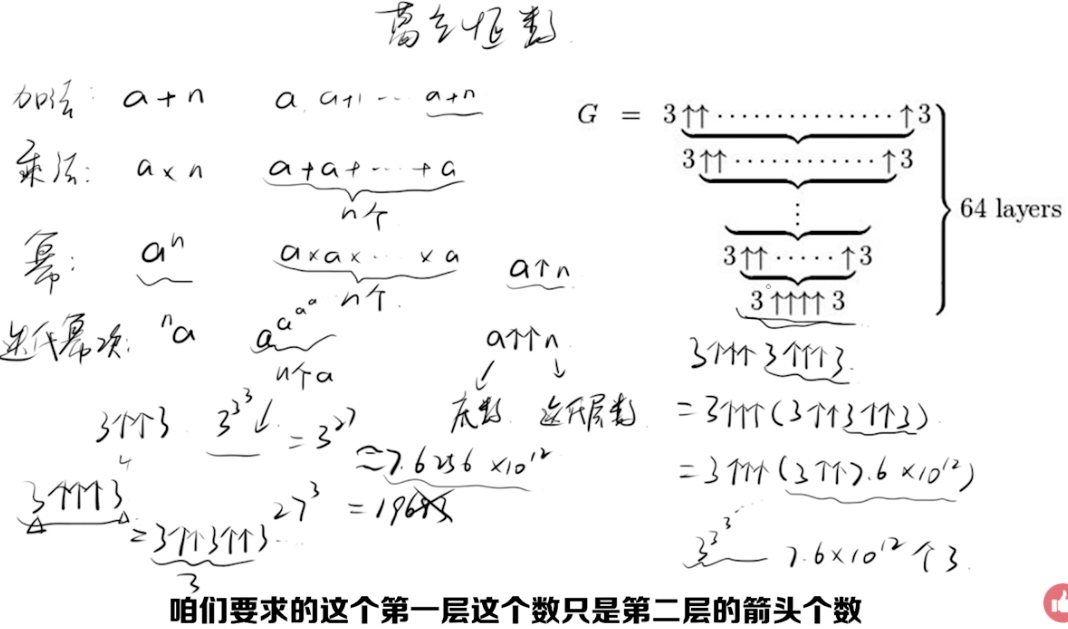 葛立恒数
加法: a+n a, a+1 ... a+n
乘法: a×n a+a+...+a
n个
幂: aⁿ a×a×...×a a↑n
n个
迭代幂次: ⁿa a^a^a^a a↑↑n
n个a
底数 迭代层数
3↑↑3 3^3^3 = 3^27
≈7.6256×10^12
27^3 = 19683
4
3↑↑↑3
=3↑↑3↑↑3
3
G = 3↑↑...............↑3
3↑↑............↑3
⋮
3↑↑.....↑3
3↑↑↑↑3
64 layers
3↑↑↑3↑↑↑3
=3↑↑↑(3↑↑3↑↑3)
=3↑↑↑(3↑↑7.6×10^12)
3^3^3... 7.6×10^12个3
咱们要求的这个第一层这个数只是第二层的箭头个数